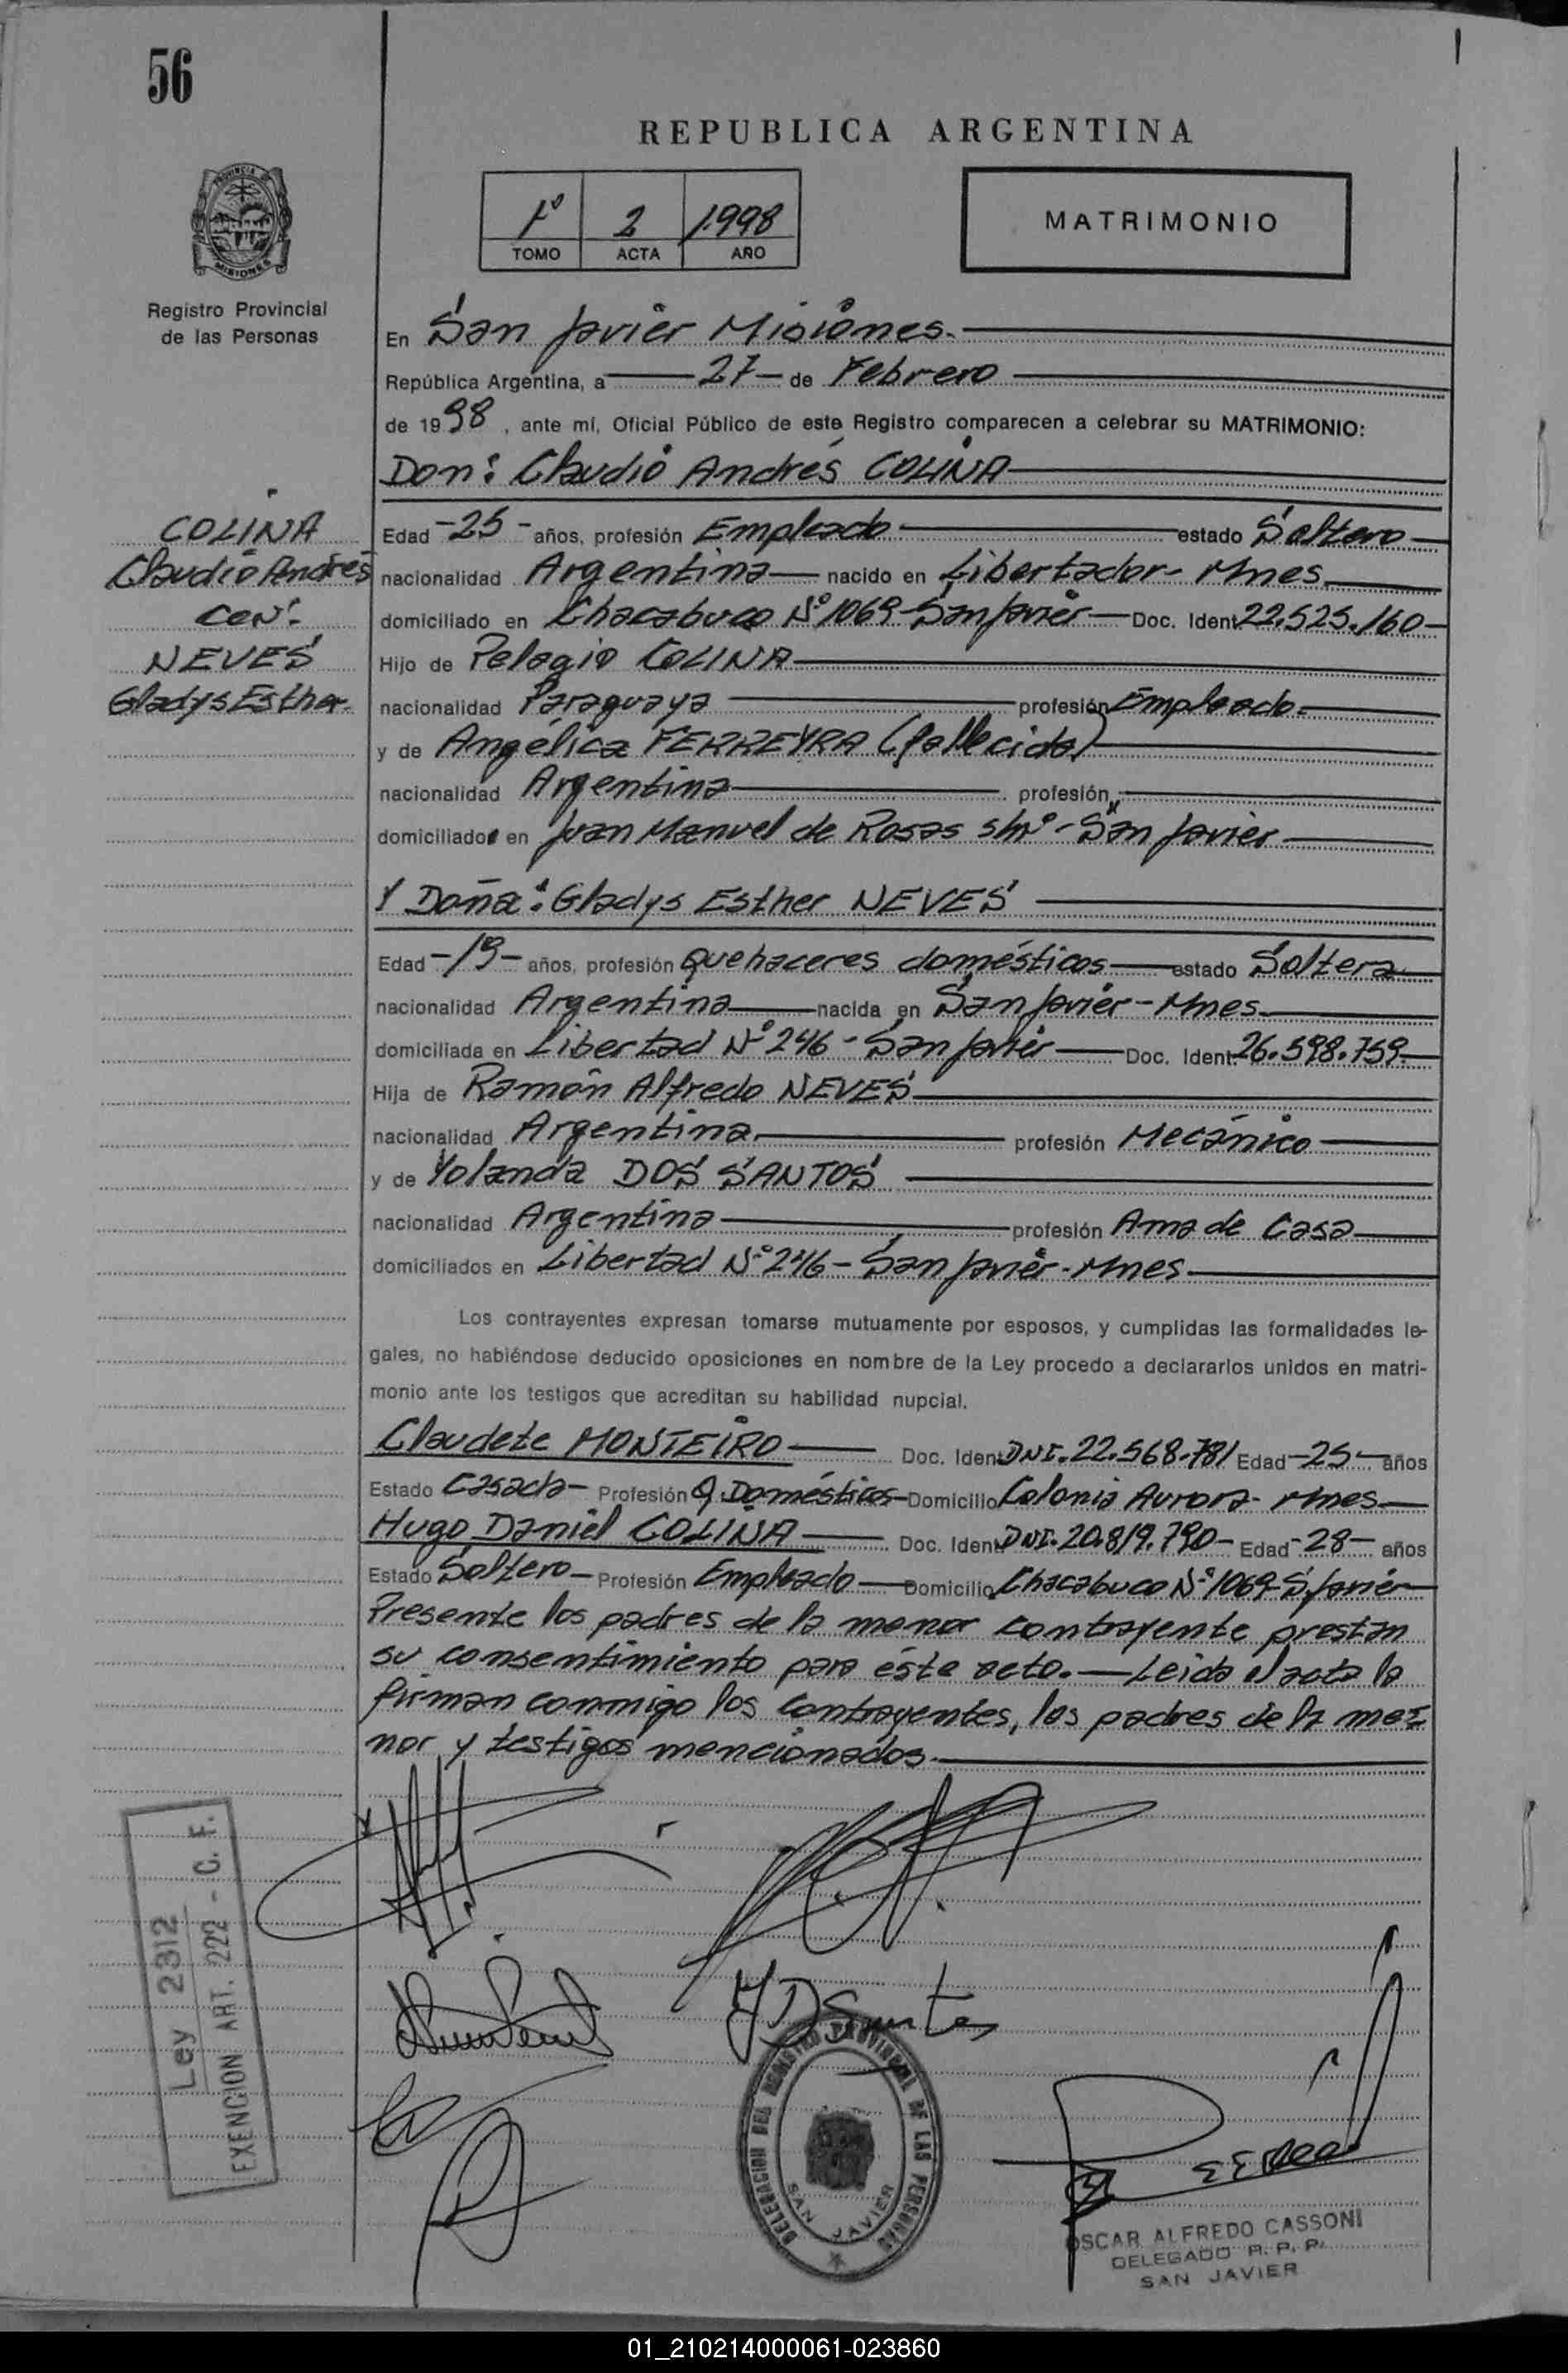 56
REPUBLICA ARGENTINA
1º 2 1998
TOMO ACTA AÑO
MATRIMONIO
PROVINCIA DE
MISIONES
Registro Provincial
de las Personas
En San Javier Misiones.
República Argentina, a 27 de Febrero
de 1998, ante mí, Oficial Público de este Registro comparecen a celebrar su MATRIMONIO:
Don: Claudio Andrés COLINA
COLINA
Claudio Andrés
con:
NEVES
Gladys Esther.
Edad -25- años, profesión Empleado estado Soltero
nacionalidad Argentina nacido en Libertador- Mnes
domiciliado en Chacabuco Nº 1069-San Javier Doc. Ident. 22.525.160
Hijo de Pelagio COLINA
nacionalidad Paraguaya profesión Empleado.
y de Angélica FERREYRA (fallecida)
nacionalidad Argentina profesión
domiciliados en Juan Manuel de Rosas s/nº - San Javier
Y Doña: Gladys Esther NEVES
Edad -19- años, profesión Quehaceres domésticos estado Soltera
nacionalidad Argentina nacida en San Javier- Mnes
domiciliada en Libertad Nº 246 - San Javier Doc. Ident. 26.598.759
Hija de Ramón Alfredo NEVES
nacionalidad Argentina profesión Mecánico
y de Yolanda DOS SANTOS
nacionalidad Argentina profesión Ama de Casa
domiciliados en Libertad Nº 246 - San Javier-Mnes
Los contrayentes expresan tomarse mutuamente por esposos, y cumplidas las formalidades le-
gales, no habiéndose deducido oposiciones en nombre de la Ley procedo a declararlos unidos en matri-
monio ante los testigos que acreditan su habilidad nupcial.
Claudete MONTEIRO Doc. Ident. DNI. 22.568.781 Edad -25- años
Estado Casada- Profesión Q. Domésticos- Domicilio Colonia Aurora- Mnes
Hugo Daniel COLINA Doc. Ident. DNI. 20.819.790- Edad -28- años
Estado Soltero- Profesión Empleado Domicilio Chacabuco Nº 1069-S. Javier
Presente los padres de la menor contrayente prestan
su consentimiento para éste acto.- Leida el acta la
firman conmigo los contrayentes, los padres de la me=
nor y testigos mencionados.
Ley 2312
EXENCION ART. 222 - C. F.
YDSantos
DELEGACION DEL REGISTRO PROVINCIAL DE LAS PERSONAS
SAN JAVIER
OSCAR ALFREDO CASSONI
DELEGADO R. P. P.
SAN JAVIER
01_210214000061-023860